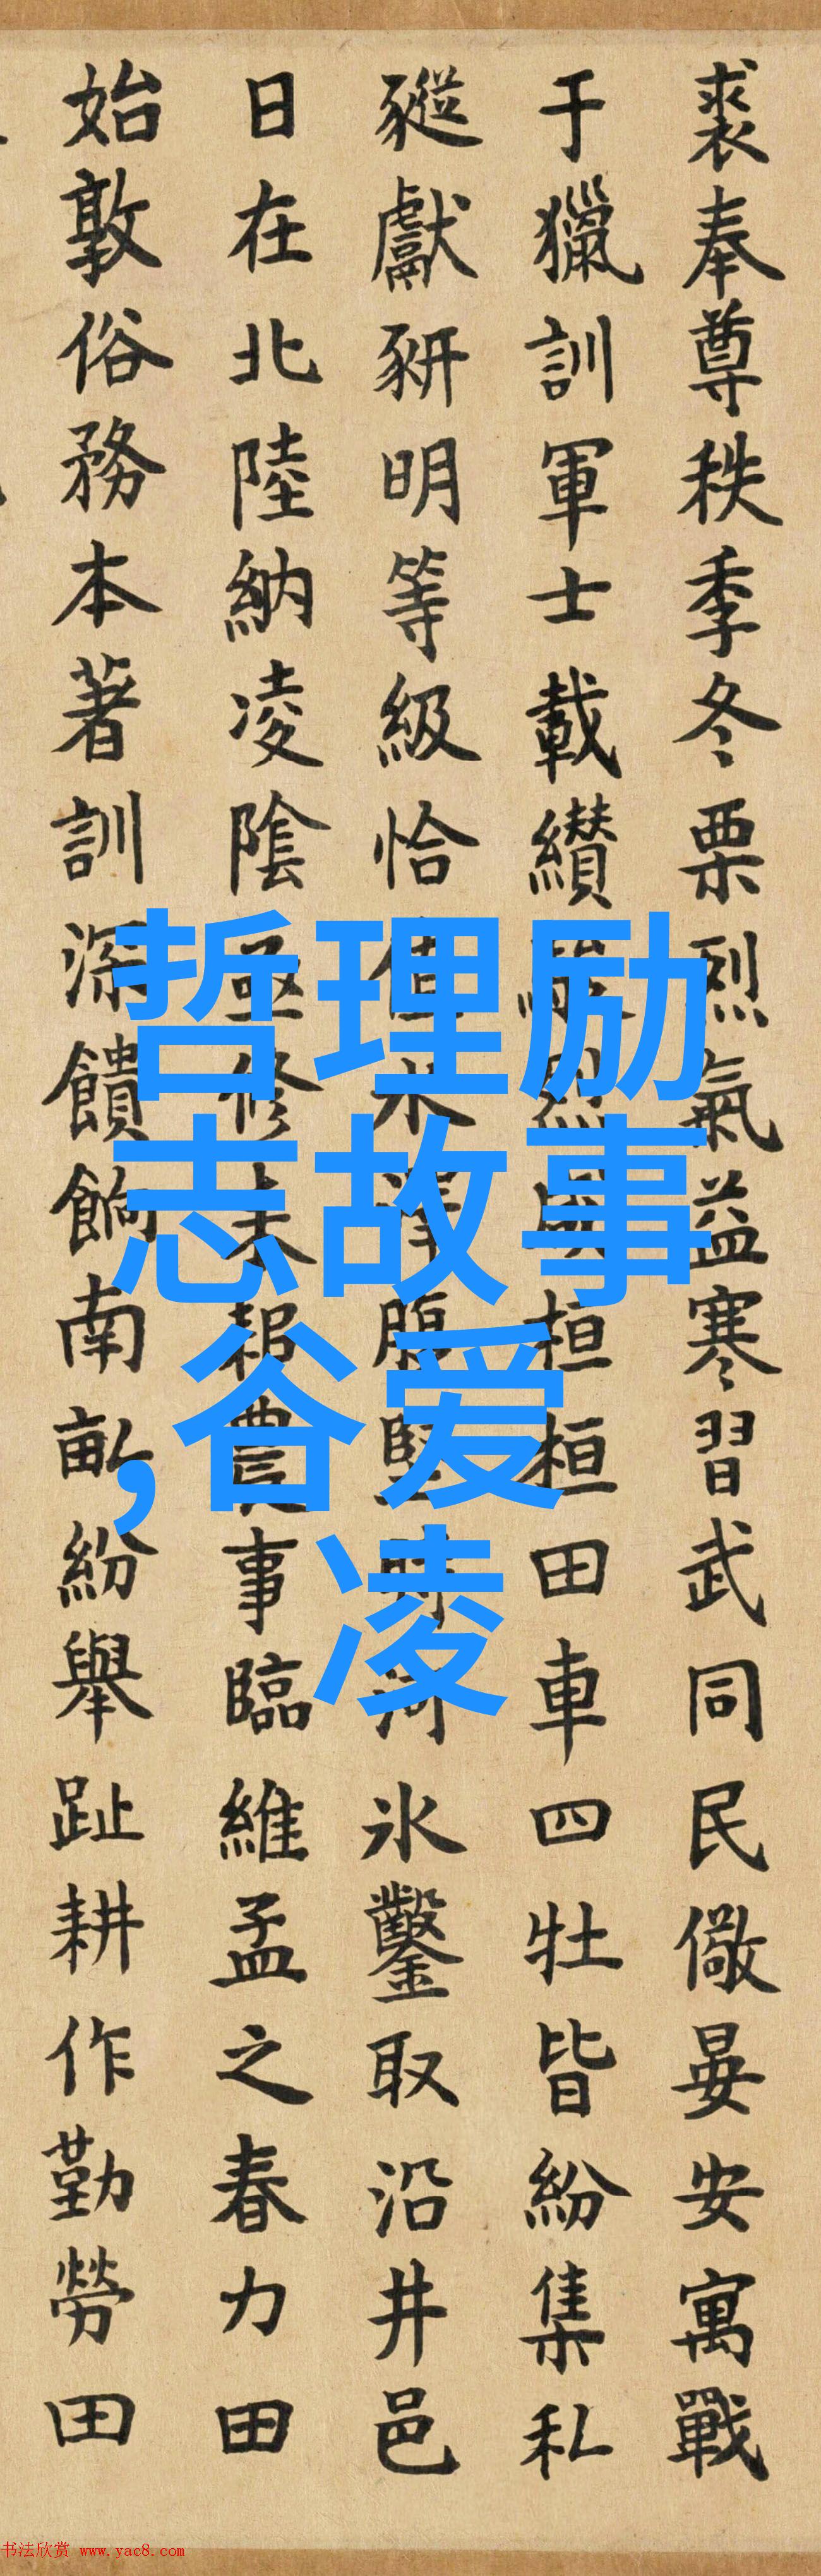 裘奉尊秩季冬栗烈氣益寒習武同民儆晏安寓戰
于獵訓軍士載纘武烈桓桓田車四牡皆紛集私
豵獻豜明等級恰值水澤腹堅時河氷鑿取沿井邑
日在北陸納凌陰亟修耒耜農事臨維孟之春力田
始敦俗務本著訓深饋餉南畝紛舉趾耕作勤勞田
哲理励
志故事
,谷爱
凌
书法欣赏 www.yac8.com